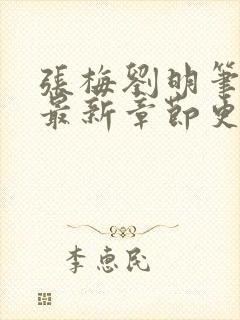 張梅劉明筆
最新章節史
李惠民